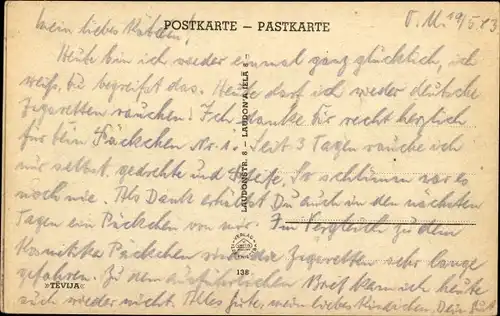 POSTKARTE – PASTKARTE
O. U. 19/5. 43
Mein liebes
Heute bin ich wieder einmal ganz glücklich, ich
weiß, Du begreifst das. Heute darf ich wieder deutsche
Zigaretten rauchen! Ich danke Dir recht herzlich
für Dein Päckchen Nr. 1. Seit 3 Tagen rauche ich
nur selbst gedrehte und Pfeife. So schlimm war es
noch nie. Als Dank erhältst Du auch in den nächsten
Tagen ein Päckchen von mir. Im Vergleich zu dem
Päckchen sind die Zigaretten sehr lange
gefahren. Zu dem ausführlichen Brief kann ich heute
auch wieder nicht. Alles Gute, mein liebes Dein
LAUDONSTR. 8 – LAUDON'A IELĀ 8
138
»TEVIJA«